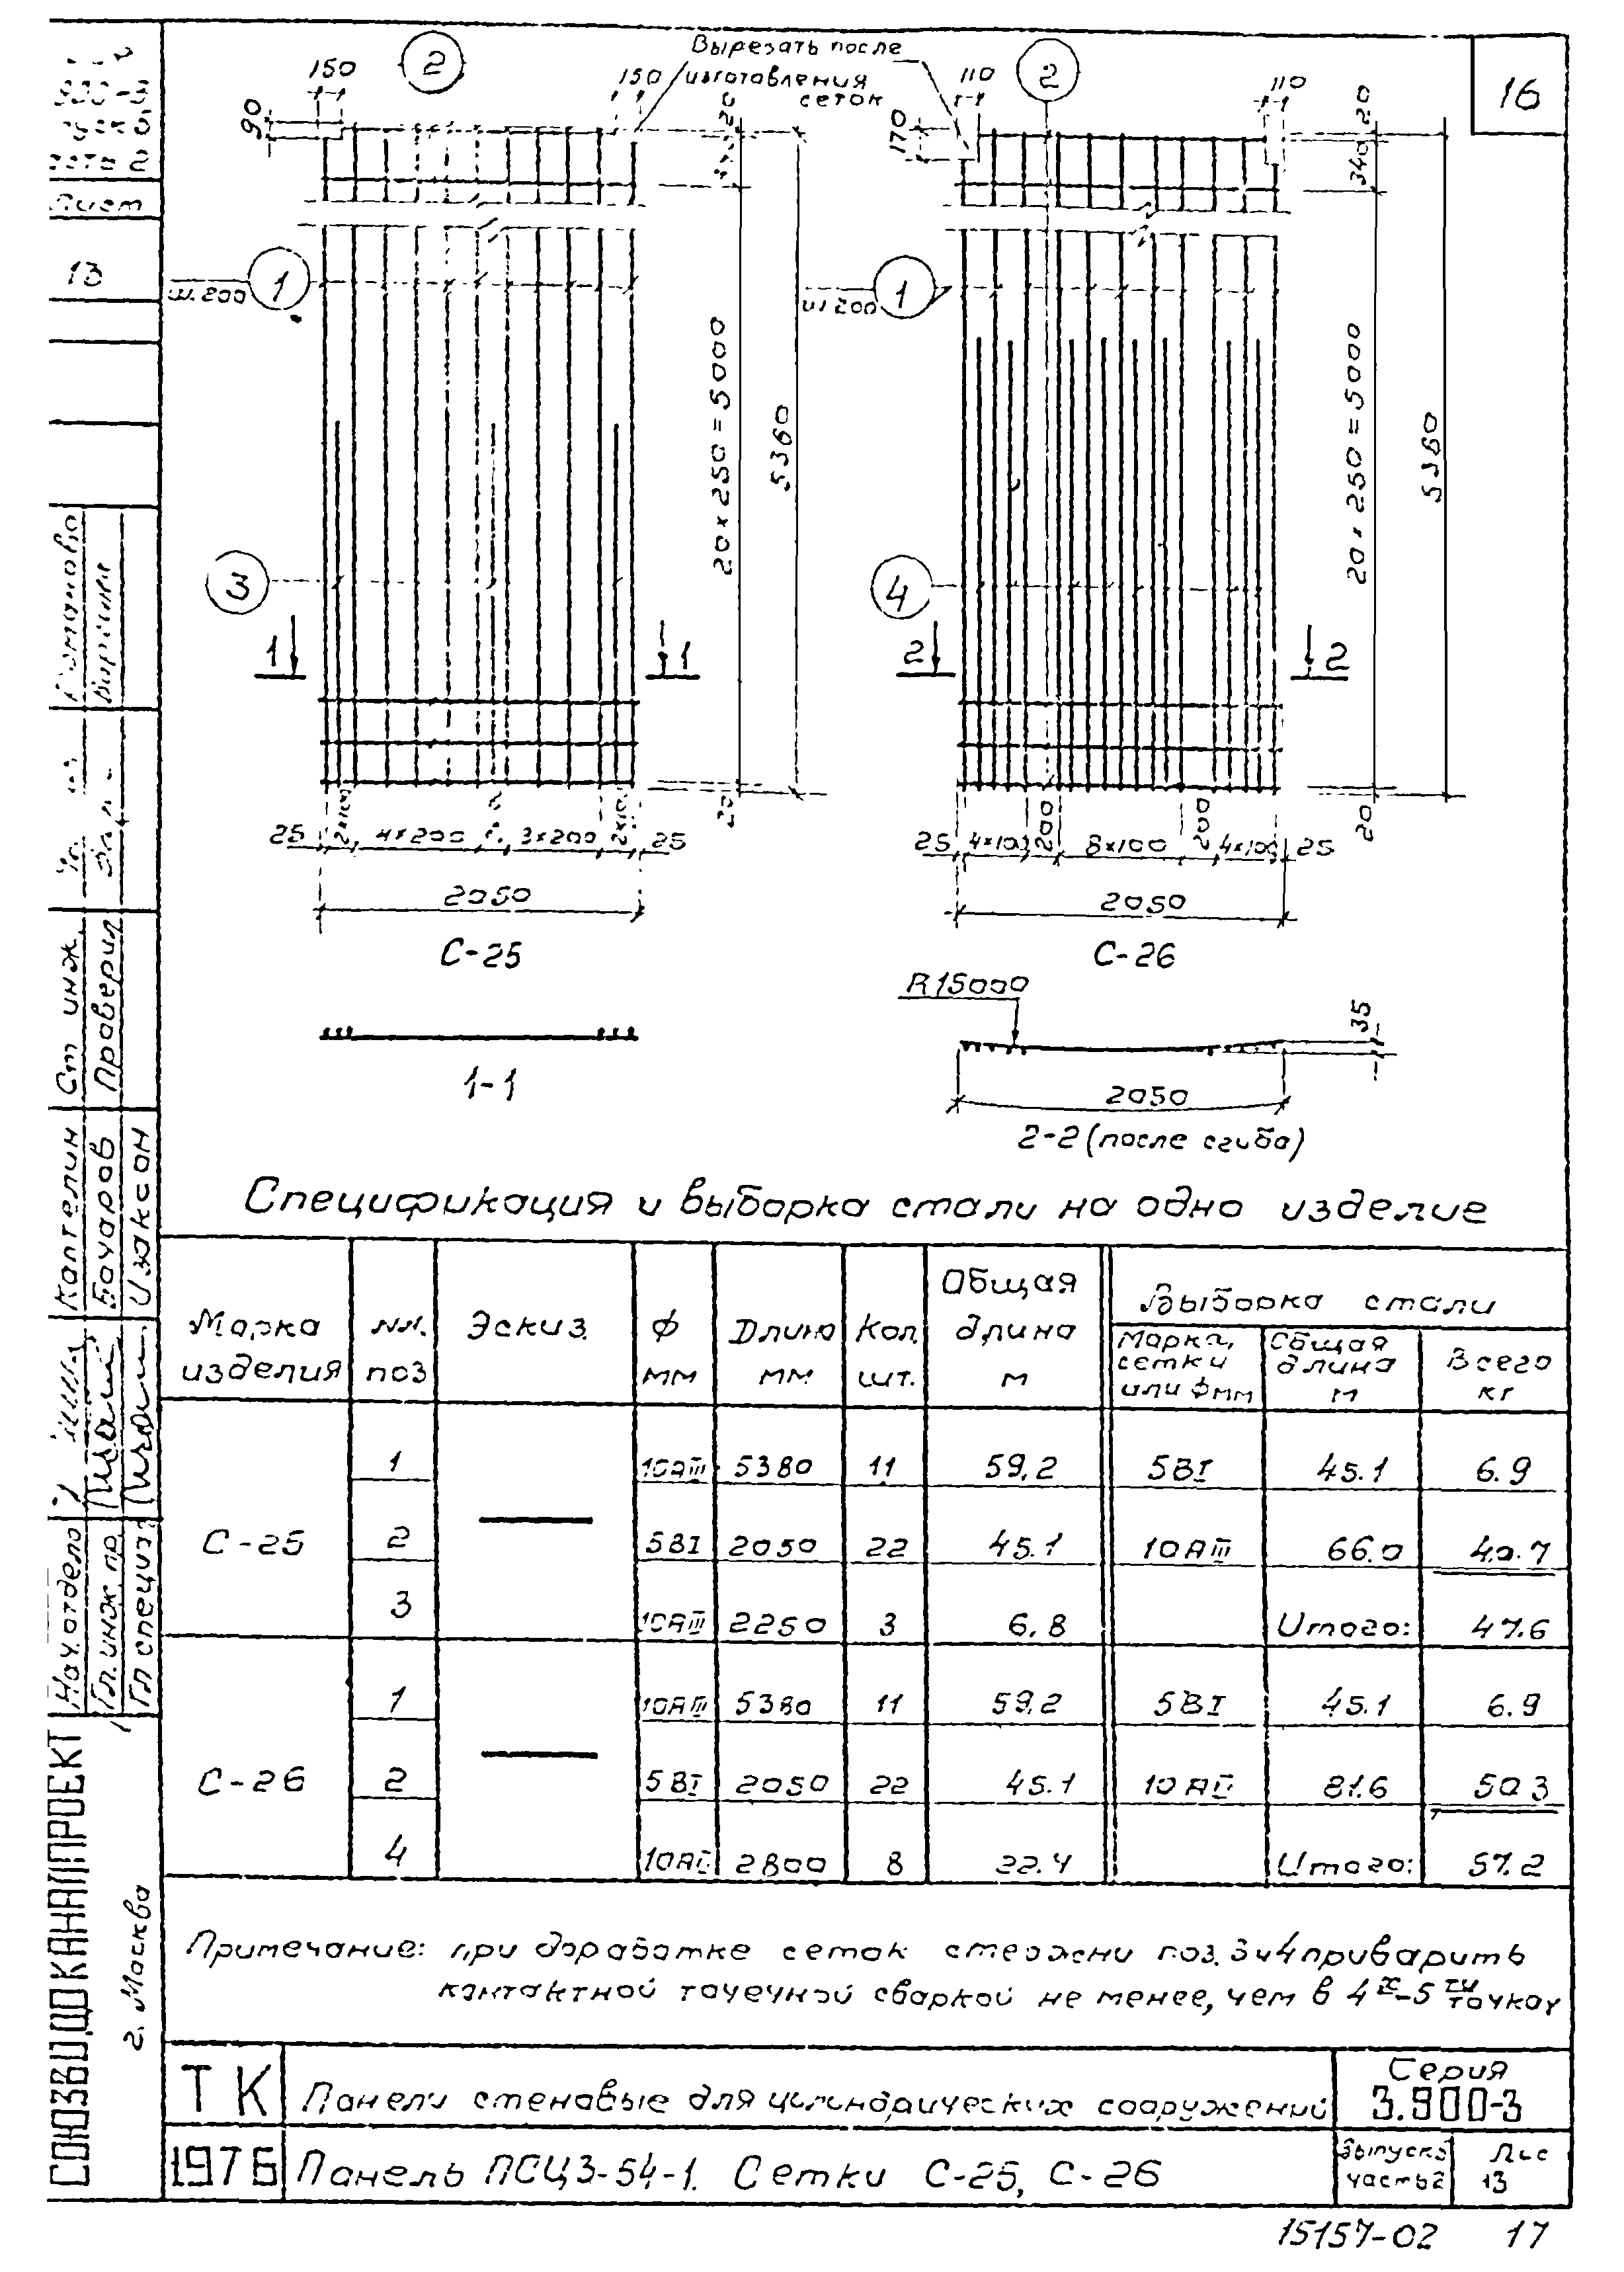 16
Вырезать после
изготовления
сеток
150
2
150
90
20
1
ш.200
3
20×250=5000
5380
1
1
25
2×100
4×200
3×200
2×100
25
20
2050
С-25
1-1
110
2
110
170
20
340
1
ш 200
4
20×250=5000
5380
2
2
25
4×100
200
8×100
200
4×100
25
20
2050
С-26
R15000
35
2050
2-2 (после сгиба)
Лист
13
Ст инж.
Проверил
Каптелин
Бочаров
Изаксон
Нач.отдела
Гл.инж.пр.
Гл специ
СОЮЗВОДОКАНАЛПРОЕКТ
г. Москва
Спецификация и выборка стали на одно изделие
Марка изделия
NN. поз
Эскиз.
Ф мм
Длина мм
Кол. шт.
Общая длина м
Выборка стали
Марка, сетки или Фмм
Общая длина м
Всего кг
С-25
1 10АIII 5380 11 59,2 5ВI 45.1 6.9
2 5ВI 2050 22 45.1 10АIII 66.0 40.7
3 10АIII 2250 3 6,8 Итого: 47.6
С-26
1 10АIII 5380 11 59,2 5ВI 45.1 6.9
2 5ВI 2050 22 45.1 81.6 50.3
4 2800 8 22.4 Итого: 57.2
Примечание: при доработке сеток стержни поз. 3 и 4 приварить
контактной точечной сваркой не менее, чем в 4х-5ти точках
ТК
Панели стеновые для цилиндрических сооружений
Серия
3.900-3
1976
Панель ПСЦ3-54-1. Сетки С-25, С-26
Выпуск3
часть2
Лис
13
15157-02 17